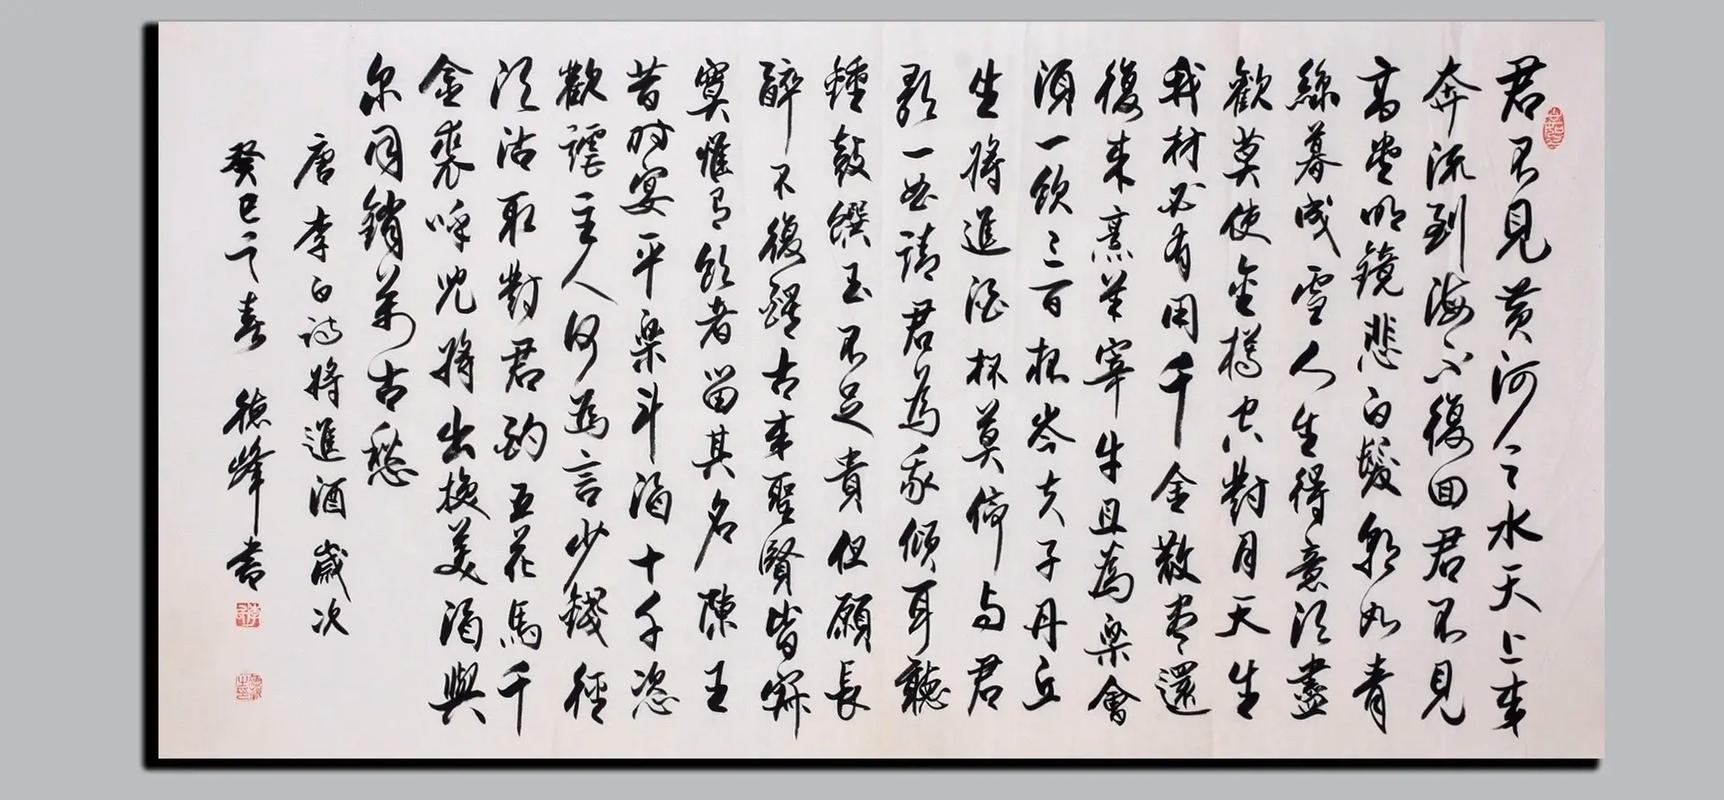 君不見黄河之水天上来
奔流到海不復回君不見
高堂明鏡悲白髮朝如青
絲暮成雪人生得意須盡
歡莫使金樽空對月天生
我材必有用千金散盡還
復来烹羊宰牛且為樂會
須一飲三百杯岑夫子丹丘
生將進酒杯莫停与君
歌一曲請君為我傾耳聽
鍾鼓饌玉不足貴但願長
醉不復醒古来聖賢皆寂
寞惟有飲者留其名陳王
昔時宴平樂斗酒十千恣
歡謔主人何為言少錢徑
須沽取對君酌五花馬千
金裘呼兒將出換美酒與
尔同銷萬古愁
唐李白詩將進酒歲次
癸巳之春 德峰書